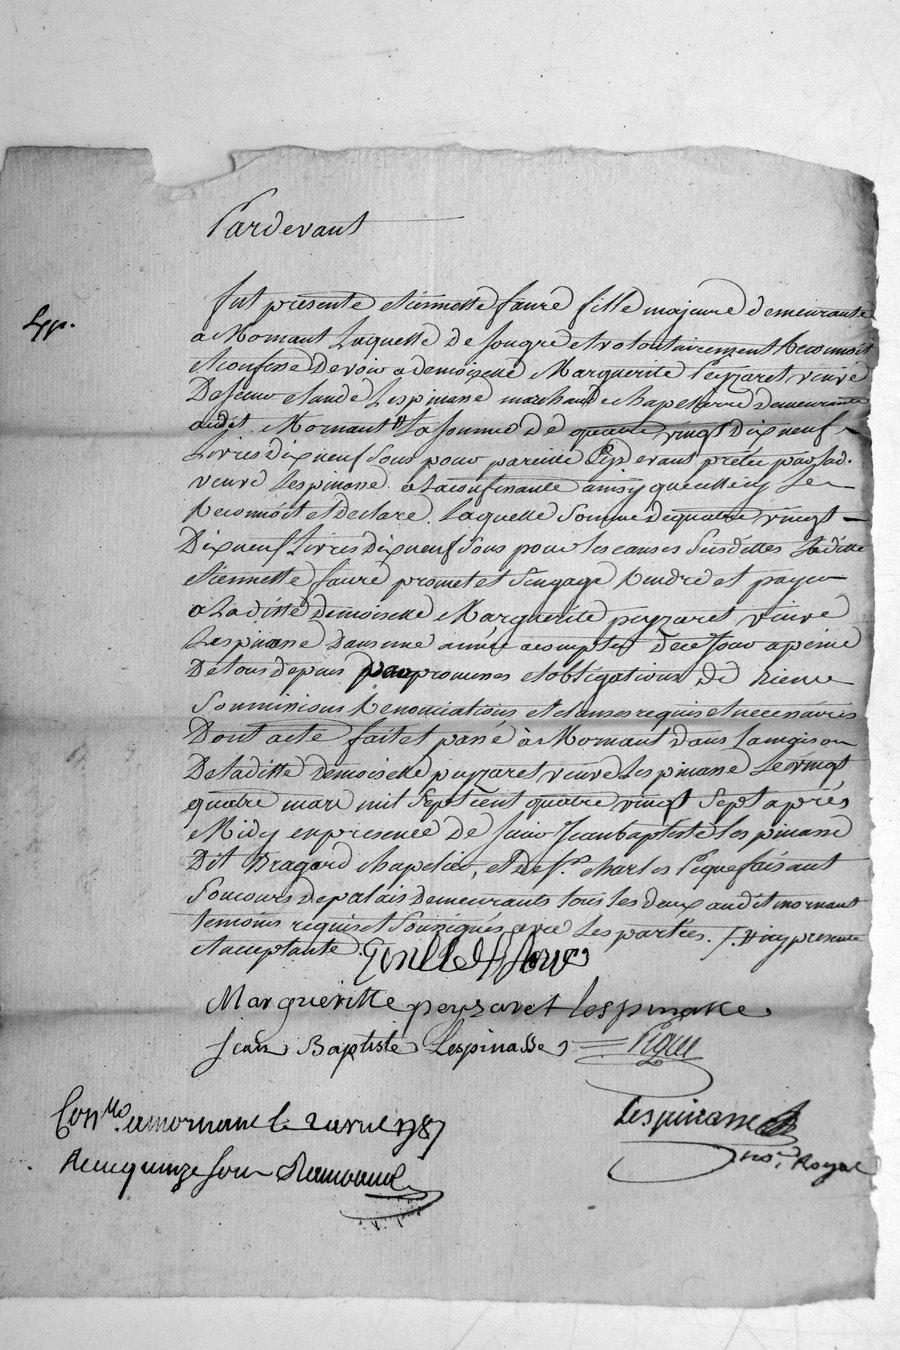 Pardevant
fut presente etiennette faure fille majeure demeurante
a Mornant Laquelle de son gré et volontairement Reconnoit
et confesse devoir a demoiselle Marguerite Peyzaret veuve
De feu claude Lespinasse marchand chapelier demeurante
audit Mornant # La somme de quatre vingt Dix neuf
Livres Dix neuf sous pour pareille cy devant pretée par lad.
veuve Lespinasse a La confessante ainsy que elle Le
Reconnoit et Declare. Laquelle somme de quatre vingt
Dix neuf Livres Dix neuf sous pour les causes susdittes Laditte
etiennette faure promet et s'engage Rendre et payer
a Laditte Demoiselle Marguerite peyzaret veuve
Lespinasse dans une année a compter De ce jour a peine
De tous depens par promesses et obligations De biens
soumissions Renonciations et clauses requis et necessaires
Dont acte fait et passé à Mornant dans la maison
De laditte Demoiselle peyzaret veuve Lespinasse Le vingt
quatre mars mil sept cent quatre vingt sept après
Midy en presence de sieur Jean baptiste Lespinasse
Dit Dragard chapelier, et De sr. charles Pique faisant
son cours de palais Demeurants tous les deux audit mornant
temoins requis et soussignés avec les parties. /. # icy presente
et acceptante
Margueritte peysaret Lespinasse
Jean Baptiste Lespinasse Pique
Lespinasse
no.re Royal
Con.llé a mornant le 2 avril 1787
Recu quinze sous